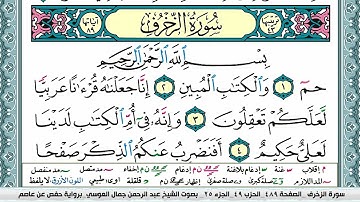 سُورَةُ الزُّخْرُفِ
بِسْمِ ٱللَّهِ ٱلرَّحْمَٰنِ ٱلرَّحِيمِ
حمٓ ١ وَٱلْكِتَٰبِ ٱلْمُبِينِ ٢ إِنَّا جَعَلْنَٰهُ قُرْءَٰنًا عَرَبِيًّا
لَّعَلَّكُمْ تَعْقِلُونَ ٣ وَإِنَّهُۥ فِىٓ أُمِّ ٱلْكِتَٰبِ لَدَيْنَا
لَعَلِىٌّ حَكِيمٌ ٤ أَفَنَضْرِبُ عَنكُمُ ٱلذِّكْرَ صَفْحًا
سورة الزخرف الصفحة ٤٨٩ الحزب ٤٩ الجزء ٢٥ بصوت الشيخ عبد الرحمن جمال العوسي برواية حفص عن عاصم